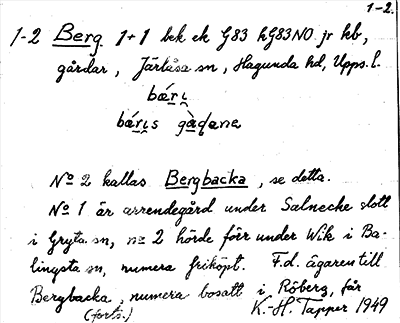 1-2.
1-2 Berg 1+1 bk ek G83 hG83NO jr kb,
gårdar, Järlåsa sn, Hagunda hd, Upps. l.
bǽrı̨
bǽrı̨s gàḍaɳe
No 2 kallas Bergbacka, se detta.
No 1 är arrendegård under Salnecke slott
i Gryta sn, no 2 hörde förr under Wik i Ba-
lingsta sn, numera friköpt. F.d. ägaren till
Bergbacka, numera bosatt i Röberg, får
(forts.) K.-H. Tapper 1949